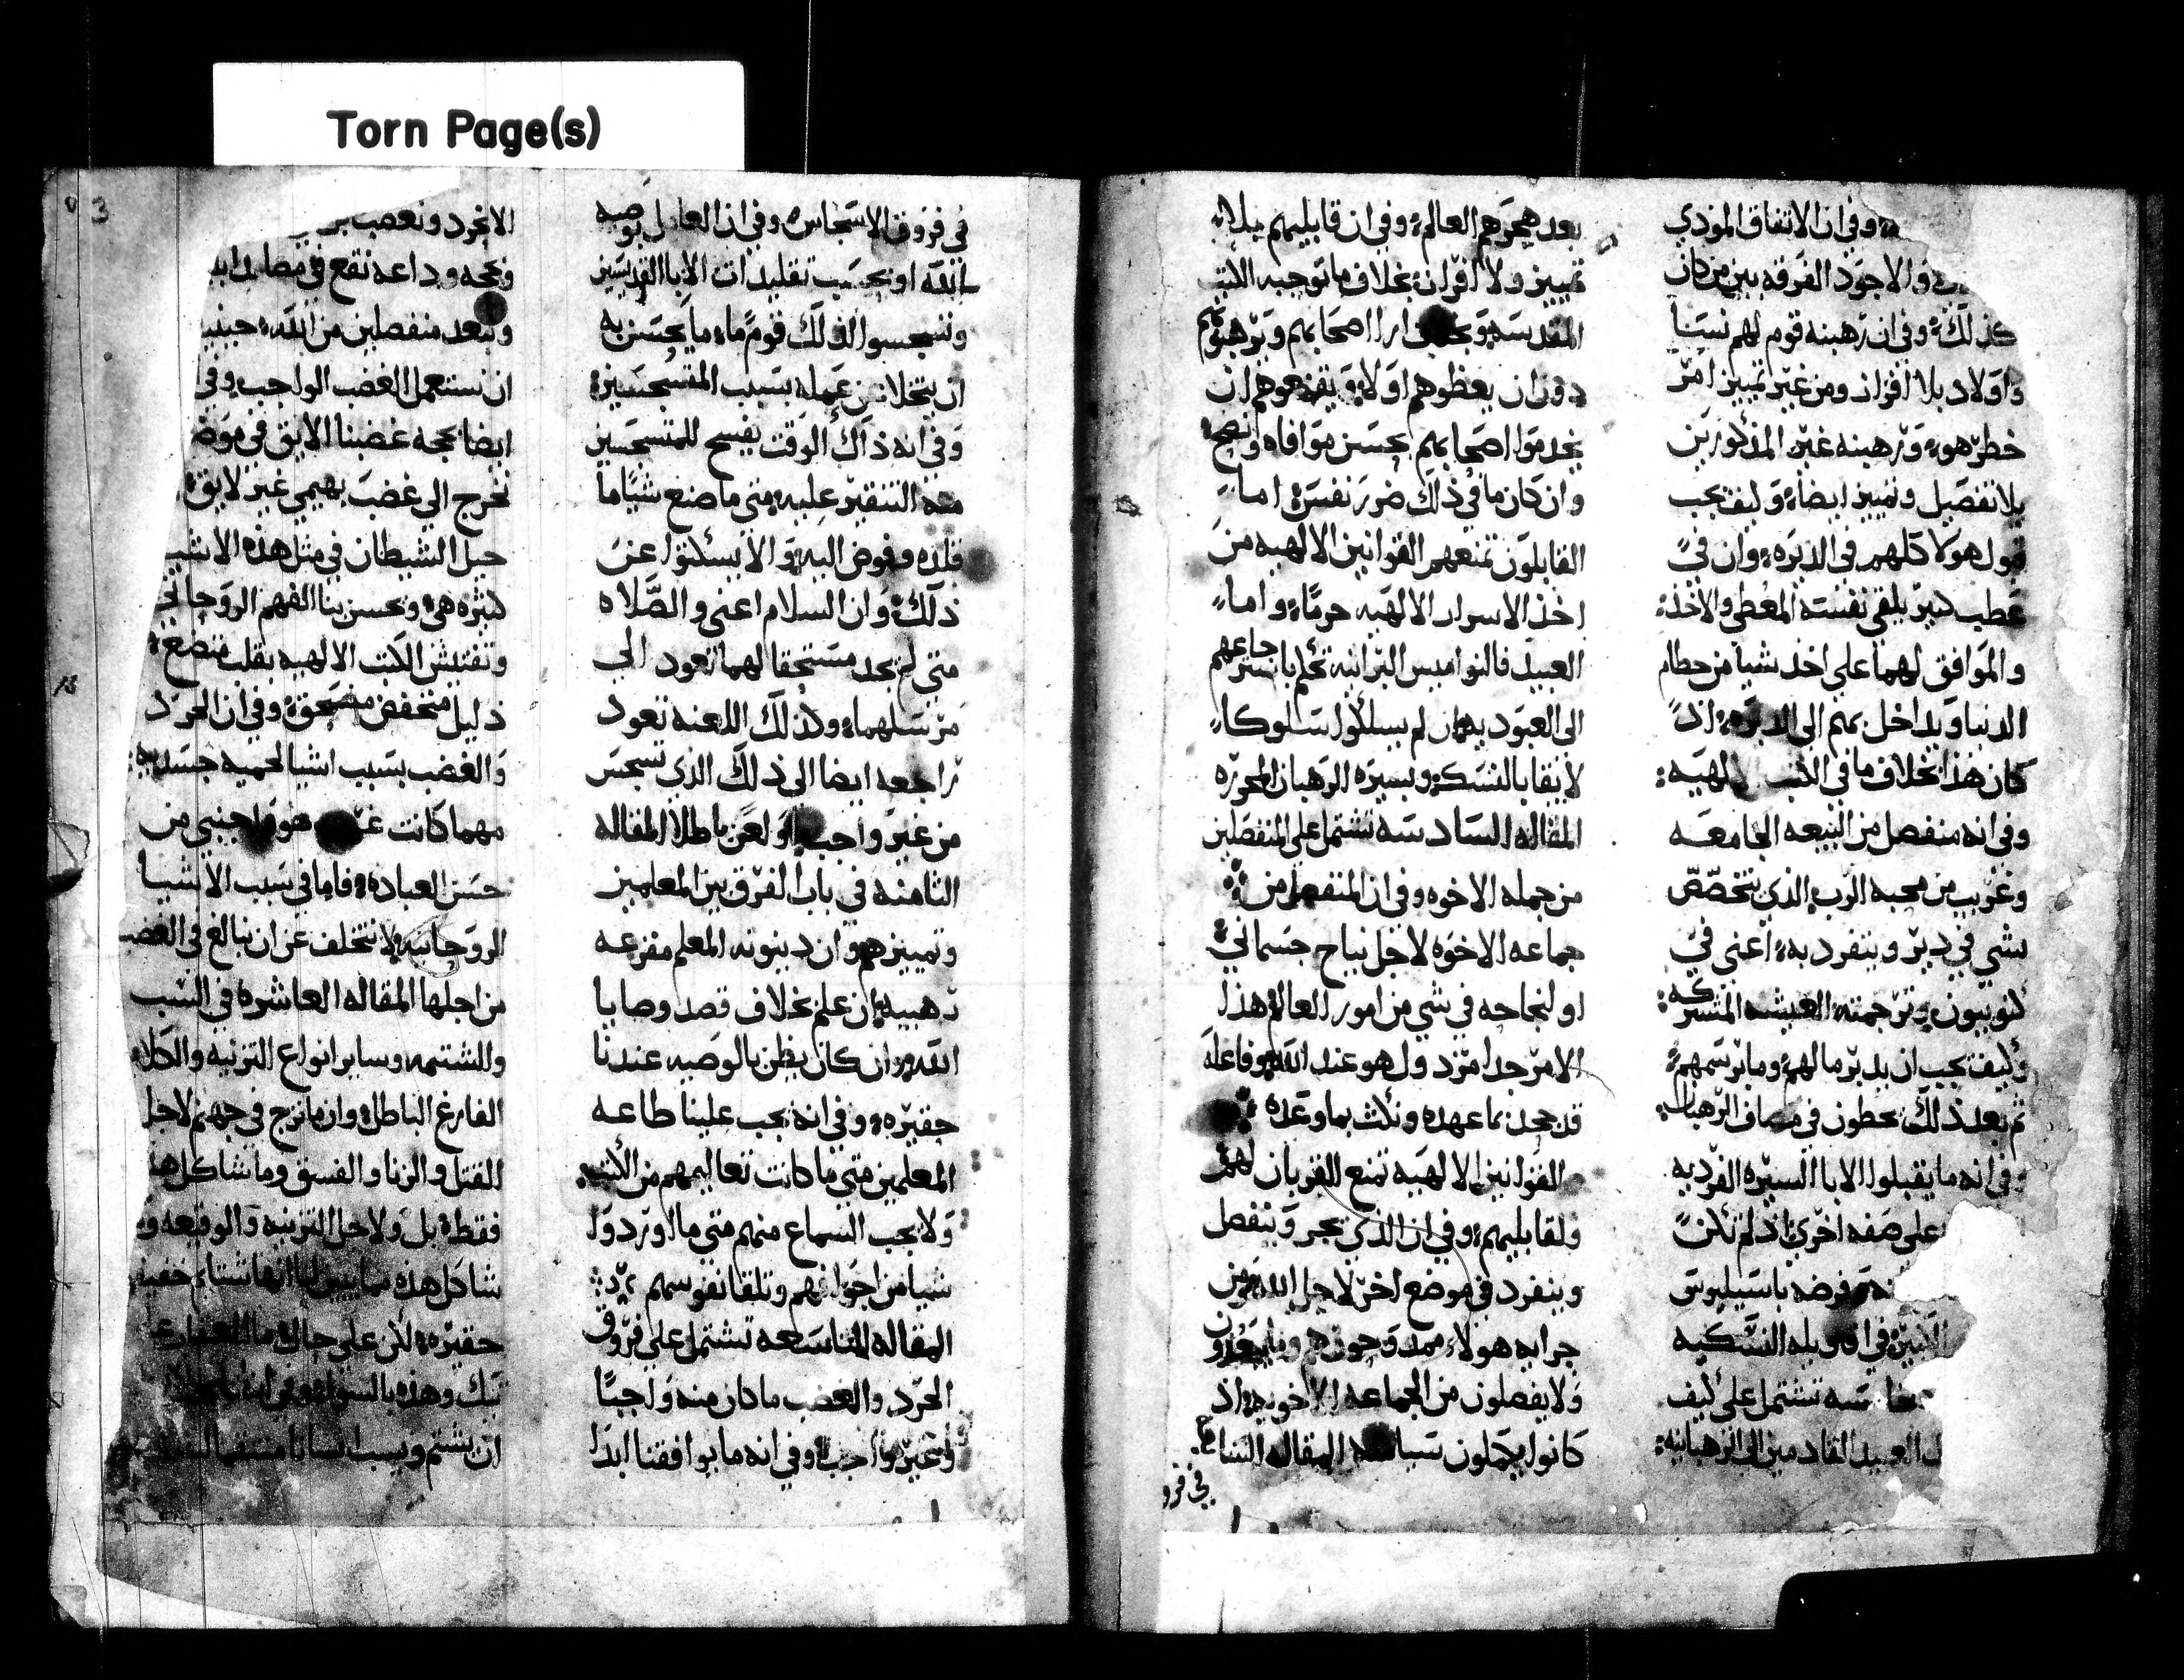 Torn Page(s)
وفي ان الاتفاق الموذي
والاجود الفرقه بين من كان
كذلك وفي ان رهبنه قوم لهم نسا
واولاد بلا افراز ومن غير تمييز امر
خطر هو ورهبنه غير المذكورين
بلا تفصيل وتمييز ايضا وكيف يجب
قبول هولا كلهم في الديره وان في
عطب كبير يلقي نفسه المعطي والاخذ
والموافق لهما علي اخذ شيا من حطام
الدنيا ويداخل بهم الى الديره اذ
كان هذا بخلاف ما في الكتب الالهيه
وفي انه منفصل من البيعه الجامعه
وغريب من محبه الرب الذي يتخصص
بشي في دير وينفرد به اعني في
كنوبيون وترجمته العيشه المشتركه
وكيف يجب ان يدبر ما لهم وما برسمهم
ثم بعد ذلك يحطون في مصاف الرهبان
وفي انه ما يقبلوا الابا السيره الفرديه
علي صفه اخرى اذ لم تكن
فرضه باسيليوس
الكبير في اقاويله النسكيه
تشتمل علي كيف
العبيد القادمين الى الرهبانيه
بعد هجرهم العالم وفي ان قابليهم بلا
تمييز ولا افراز بخلاف ما توجبه الكتب
المقدسه اصحابهم وترهبوهم
دون ان يعظوهم اولا ويقنعوهم ان
يخدموا اصحابهم بحسن موافاه ونصح
وان كان ما في ذلك ضرر نفس اما
القابلون تمنعهم القوانين الالهيه من
اخذ الاسرار الالهيه حرما واما
العبيد فالنواميس البرانيه تحكم باسترجاعهم
الى العبوديه ان لم يسلكوا سلوكا
لايقا بالنسك وبسيره الرهبان المحرره
المقاله السادسه تشتمل علي المنفصلين
من جمله الاخوه وفي ان المنفصل من
جماعه الاخوه لاجل نياح جسماني
او لنجاحه في شي من امور العالم هذا
الامر جدا مرذول هو عند الله وفاعله
قد جحد بما عهده ونكث بما وعده
والقوانين الالهيه تمنع القربان لهم
ولقابليهم وفي ان الذي يهجر وينفصل
وينفرد في موضع اخر لاجل الله ومن
جرايه هولاء ممدوحون هم وما يبعدون
ولا يفصلون من الجماعه الاخويه اذ
كانوا يجملون المقاله السابعه
في فرو
في فروق الاسجاس وفي ان العامل بوصيه
الله او بحسب تقليدات الابا القديسين
وتسجسوا لذلك قوم ما ما يحسن به
ان يتخلا عن عمله بسبب المتسجسين
وفي انه ذاك الوقت يفسح للمتسجسين
منه التنقير عليه متى ما صنع شيا ما
فلذه وفوض اليه والا يسكتوا عن
ذلك وان السلام اعني والصلاه
متى لم يجد مستحقا لهما تعود الي
مرسلهما وكذلك اللعنه تعود
راجعه ايضا الى ذلك الذي تسجس
من غير واجب ولعن باطلا المقاله
الثامنه في باب الفرق بين المعلمين
وتمييزهم وان دينونه المعلم مفزعه
رهيبه ان علم بخلاف قصد وصايا
الله وان كان يظن بالوصيه عندنا
حقيره وفي انه يجب علينا طاعه
المعلمين متى ما كانت تعاليمهم من الكتب
ولا يجب السماع منهم متى ما اوردوا
شيا من اجوافهم وتلقا نفوسهم
المقاله التاسعه تشتمل علي فروق
الحرد والغضب ما كان منه واجبا
وغير واجب وفي انه ما يوافقنا ابدا
الا نحرد ونغضب
وبحجه وداعه نقع في مصايد
ونبعد منفصلين من الله حينيذ
ان نستعمل الغضب الواجب وفي
ايضا بحجه غضبنا الايق في موضع
نخرج الي غضب بهيمي غير لايق
حيل الشيطان في مثل هذه الاشيا
كثيره هي ويحسن بنا الفهم الروحاني
وتفتيش الكتب الالهيه بقلب متضع
ذليل منخفض منسحق وفي ان الحرد
والغضب بسبب اشيا لحميه جسديه
مهما كانت هو اجنبي من
حسن العباده فاما في سبب الاشيا
الروحانيه لا نتخلف عن ان نبالغ في الغضب
من اجلها المقاله العاشره في السب
والشتيمه وساير انواع التزنيه والكلام
الفارغ الباطل وان ما نزج في جهنم لاجل
القتل والزنا والفسق وما شاكل هذا
فقط بل ولاجل التزنيه والوقيعه وما
شاكل هذه
حقيره لكن علي حال
تيك وهذه بالسوا
ان يشتم ويسب انسانا